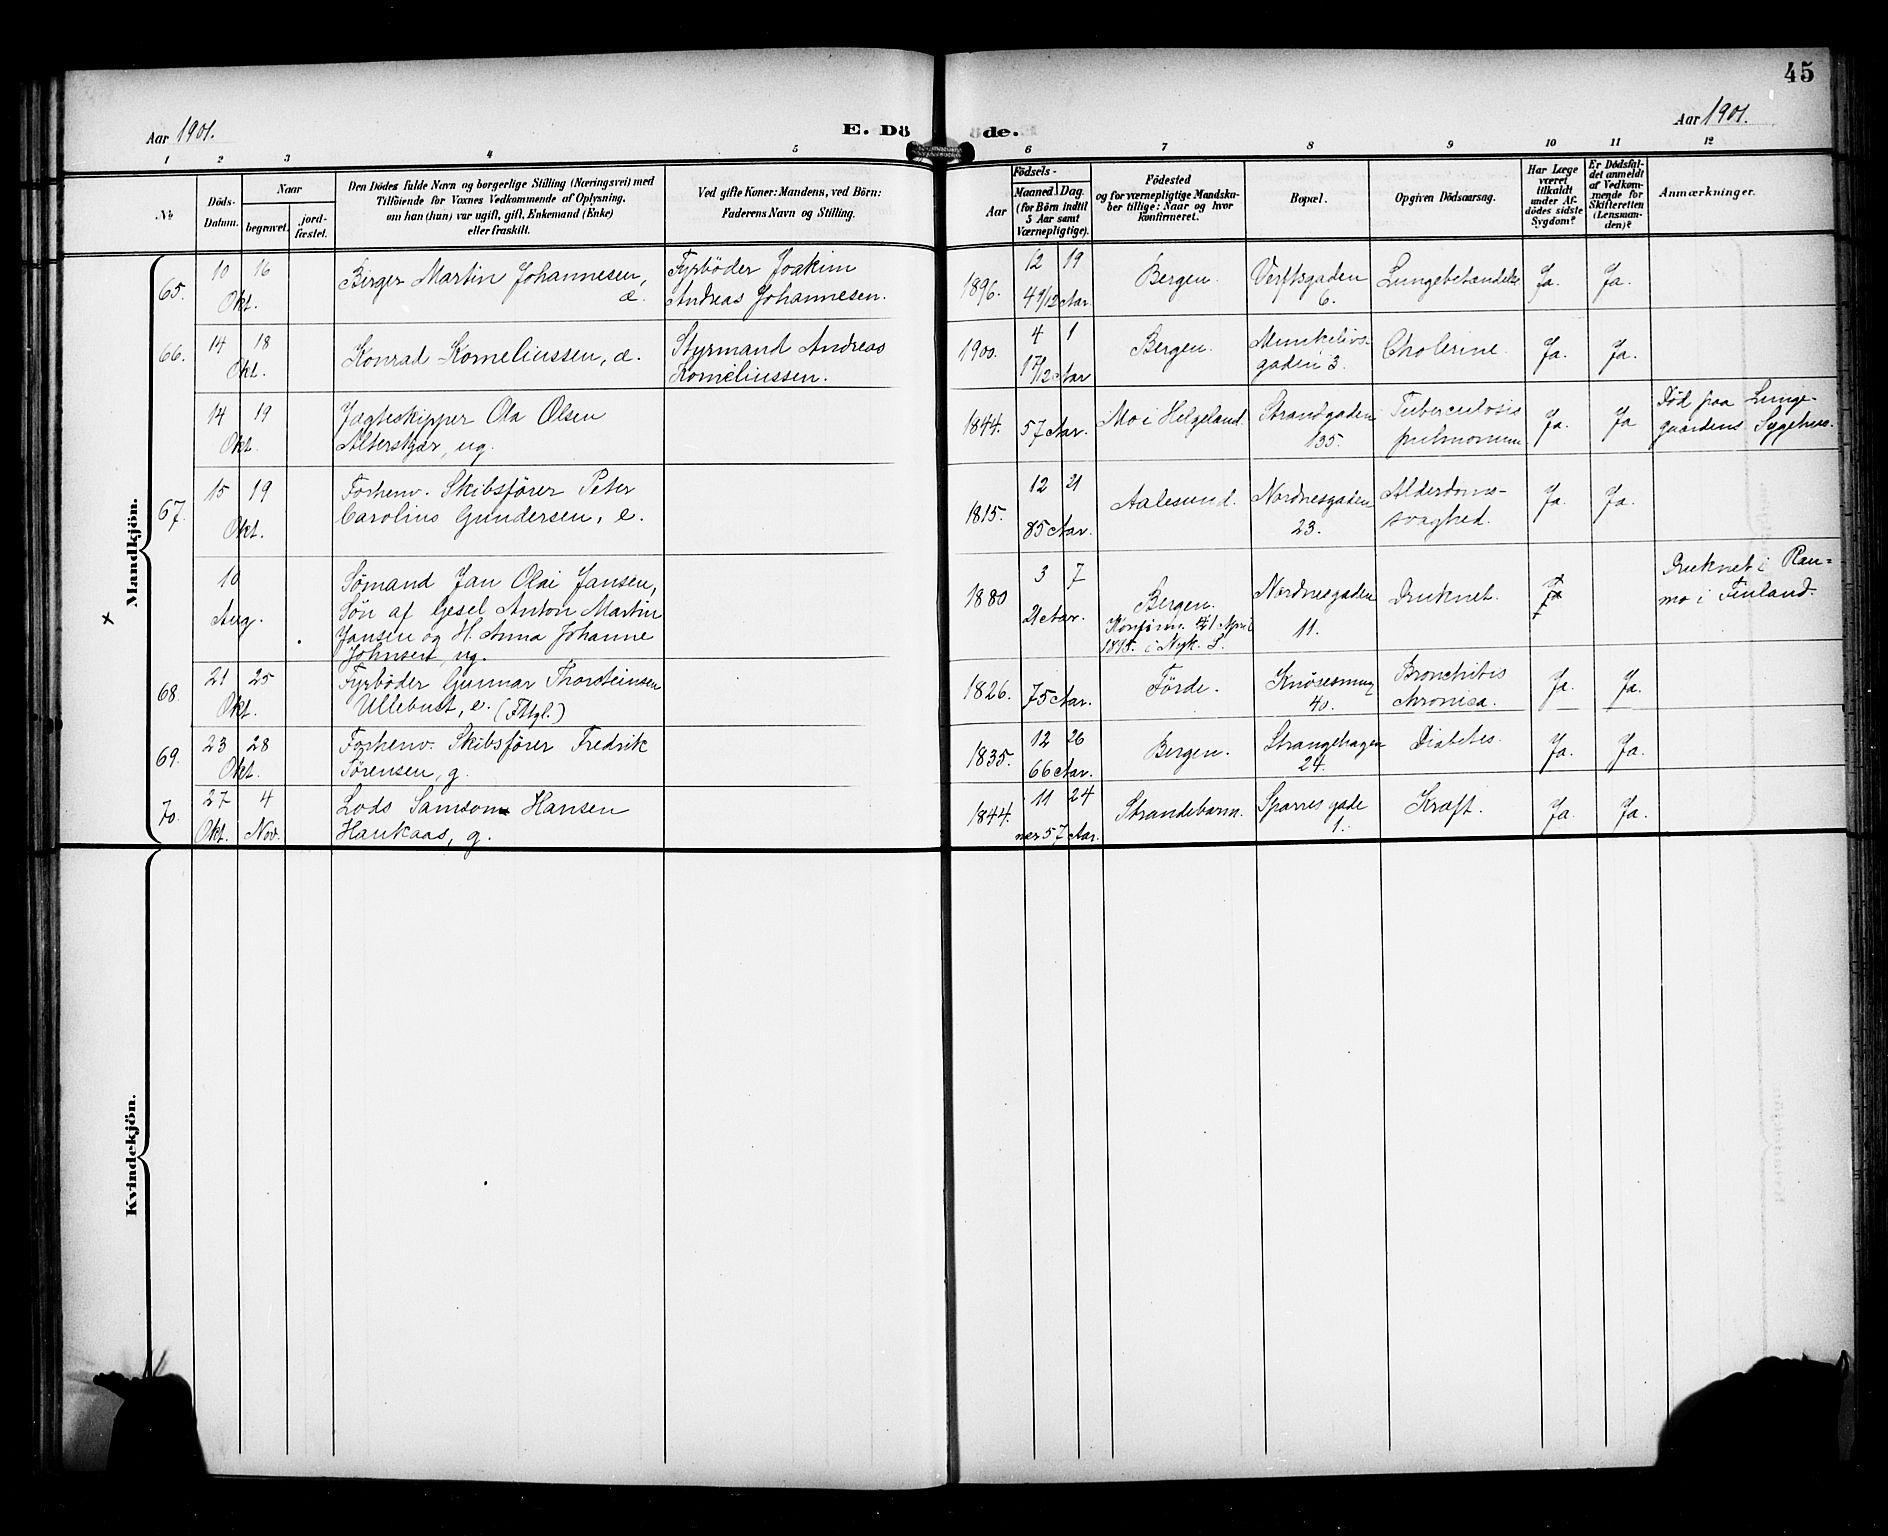 45
Aar 1901.
E. Döde.
Aar 1901.
1 2 3 4 5 6 7 8 9 10 11 12
No
Döds-
Datum.
Naar
begravet.
jord-
fæstet.
Den Dödes fulde Navn og borgerlige Stilling (Næringsvei) med
Tilföiende for Voxnes Vedkommende af Oplysning,
om han (hun) var ugift, gift, Enkemand (Enke)
eller fraskilt.
Ved gifte Koner: Mandens, ved Börn:
Faderens Navn og Stilling.
Aar
Födsels-
Maaned. Dag.
(for Börn indtil
5 Aar samt
Værnepligtige).
Födested
og for værnepligtige Mandska-
ber tillige: Naar og hvor
konfirmeret.
Bopæl.
Opgiven Dödsaarsag.
Har Læge
været
tilkaldt
under Af-
dödes sidste
Sygdom?
Er Dödsfal-
det anmeldt
af Vedkom-
mende for
Skifteretten
(Lensman-
den)?
Anmærkninger.
Mandkjön.
65. 10 16 Birger Martin Johannesen, Fyrböder Joakim 1896. 12 19 Bergen. Verftsgaden Lungebetændelse Ja. Ja.
Okt. æ. Andreas Johannesen. 4 9/12 Aar 6.
66. 14 18 Konrad Korneliussen, æ. Styrmand Andreas 1900. 4 1 Bergen. Munkelivs- Cholerine. Ja. Ja.
Okt. Korneliussen. 1 7/12 Aar gaden 3.
14 19 Jagteskipper Ola Olsen 1844. 57 Aar. Mo i Helgeland. Strandgaden Tuberculosis Ja. Ja Död paa Lunge-
Okt. Alterskjær, ug. 135. pulmonum gaardens Sygehus.
67. 15 19 Forhenv. Skibsförer Peter 1815. 12 21 Aalesund. Nordnesgaden Alderdoms- Ja. Ja.
Okt. Carolius Gundersen, e. 85 Aar. 23. svaghed.
x 10 Sömand Jan Olai Jansen, 1880 3 7 Bergen. Nordnesgaden Druknet. Druknet i Rau-
Aug. Sön af Gesel Anton Martin 21 Aar. 11. mo i Finland.
Jansen og H. Anna Johanne Konfirm. 21 April
Johnsen, ug. i Nyk. S.
68. 21 25 Fyrböder Gunnar Thorsteinsen 1826. 75 Aar. Förde. Knösesmug Bronchitis Ja. Ja.
Okt. Ullebust, e. 40. chronica.
69. 23 28 Forhenv. Skibsförer Fredrik 1835. 12 26 Bergen. Strangehagen Diabetes. Ja. Ja.
Okt. Sörensen, g. 66 Aar. 24.
70. 27 4 Lods Samson Hansen 1844. 11 24 Strandebarm. Sparres gade Kræft. Ja. Ja.
Okt. Nov. Haukaas, g. nær 57 Aar. 1.
Kvindekjön.